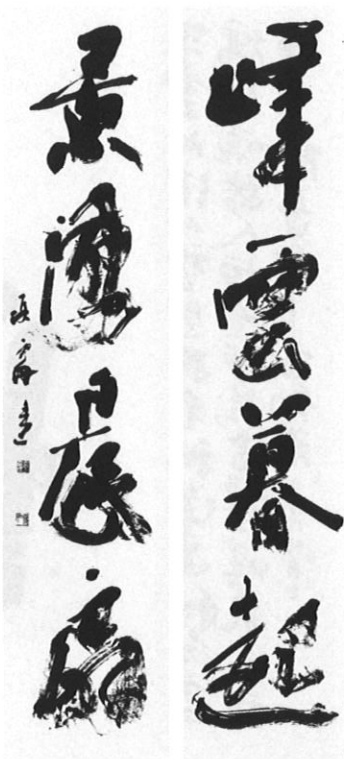 峰雲暮起
景風晨扇